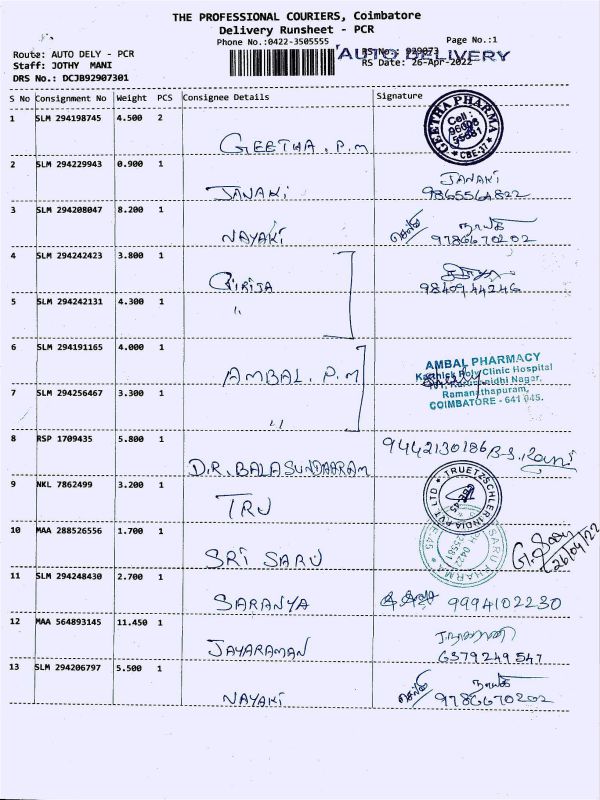 THE PROFESSIONAL COURIERS, Coimbatore
Delivery Runsheet - PCR
Phone No.:0422-3505555
Page No.:1
Route: AUTO DELY - PCR
RS No.: 929073
AUTO DELIVERY
Staff: JOTHY MANI
RS Date: 26-Apr-2022
DRS No.: DCJB92907301
S No Consignment No Weight PCS Consignee Details Signature
1 SLM 294198745 4.500 2
GEETHA. P.M
GEETHA PHARMA
Cell :
CBE-37
2 SLM 294229943 0.900 1
JANAKI
JANAKI
9865564822
3 SLM 294208047 8.200 1
NAYAKI
செல்வி நாயகி
9786670202
4 SLM 294242423 3.800 1
GIRIJA
9840944246
5 SLM 294242131 4.300 1
"
6 SLM 294191165 4.000 1
AMBAL. P.M
AMBAL PHARMACY
Karthick Poly Clinic Hospital
Nagar,
Ramanathapuram,
COIMBATORE - 641 045.
7 SLM 294256467 3.300 1
"
8 RSP 1709435 5.800 1
D.R. BALASUNDAARAM
9442130186
9 NKL 7862499 3.200 1
TRU
TRUETZSCHLER INDIA PVT LTD
10 MAA 288526556 1.700 1
SRI SARU
SARU PHARMA
26/04/22
11 SLM 294248430 2.700 1
SARANYA
9994102230
12 MAA 564893145 11.450 1
JAYARAMAN
6379249547
13 SLM 294206797 5.500 1
NAYAKI
செல்வி நாயகி
9786670202